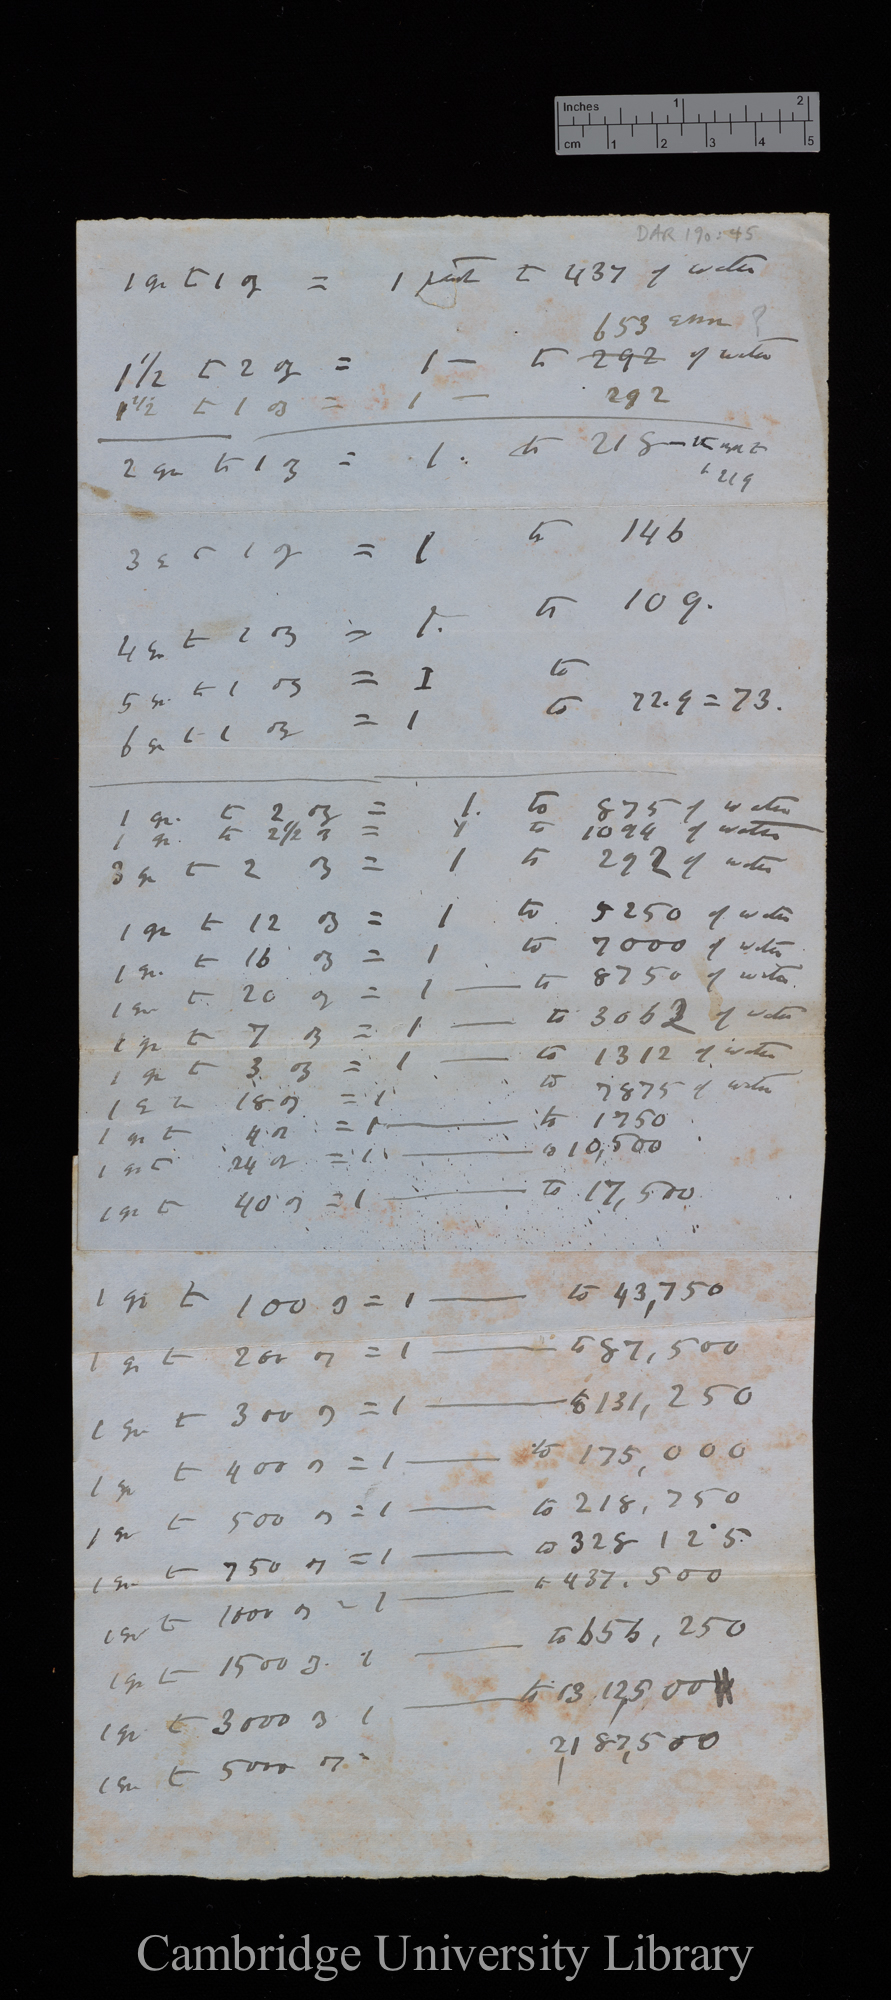 Inches 1 2
cm 1 2 3 4 5
DAR 190: 45
1 gr to 1 oz = 1 part to 437 of water
653 error ?
1 1/2 to 2 oz = 1 — to 292 of water
1 1/2 to 1 oz = 1 — 292
2 gr to 1 oz = 1. to 218 —
219
3 gr to 1 oz = 1 to 146
4 gr to 1 oz = 1. to 109.
5 gr. to 1 oz = 1 to
6 gr to 1 oz = 1 to 72.9 = 73.
1 gr. to 2 oz = 1. to 875 of water
1 gr. to 2 1/2 oz = 1 to 1094 of water
3 gr to 2 oz = 1 to 292 of water
1 gr to 12 oz = 1 to 5250 of water
1 gr. to 16 oz = 1 to 7000 of water
1 gr to 20 oz = 1 — to 8750 of water.
1 gr to 7 oz = 1 — to 3062 of water
1 gr to 3 oz = 1 — to 1312 of water
1 gr to 18 oz = 1 to 7875 of water
1 gr to 4 oz = 1 — to 1750
1 gr to 24 oz = 1 — to 10,500
1 gr to 40 oz = 1 — to 17,500
1 gr to 100 oz = 1 — to 43,750
1 gr to 200 oz = 1 — to 87,500
1 gr to 300 oz = 1 — to 131,250
1 gr to 400 oz = 1 — to 175,000
1 gr to 500 oz = 1 — to 218,750
1 gr to 750 oz = 1 — to 328 12·5.
1 gr to 1000 oz – 1 — to 437.500
1 gr to 1500 oz. 1 — to 656,250
1 gr to 3000 oz 1 — to 13,125,00
1 gr to 5000 oz = 2,187,500
Cambridge University Library